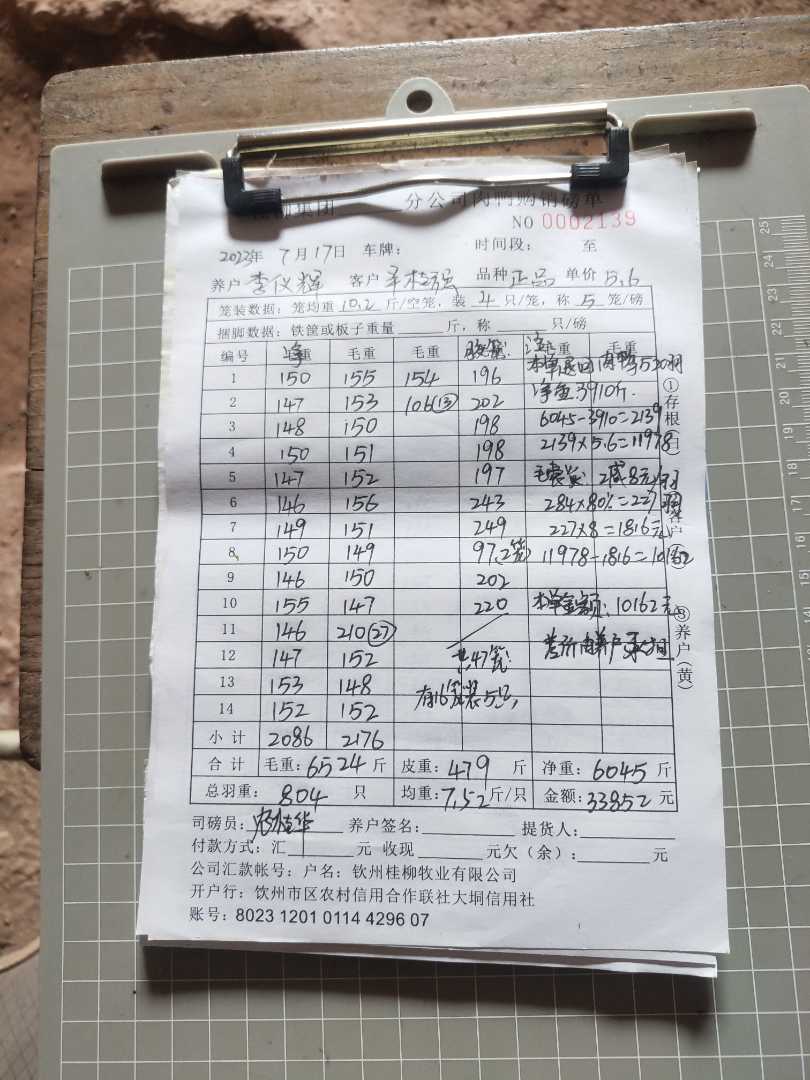 分公司肉鸭购销磅单
NO 0002139
2023年 7月17日 车牌： 时间段： 至
养户 李仪辉 客户 品种 正品 单价 5.6
笼装数据：笼均重 10.2 斤/空笼，装 4 只/笼，称 5 笼/磅
捆脚数据：铁筐或板子重量 斤，称 只/磅
编号 毛重 毛重 毛重 毛重 毛重
1 150 155 154 196
2 147 153 106(13) 202 净重:3910斤.
3 148 150 198 6045-3910=2139
4 150 151 198 2139×5.6=11978
5 147 152 197 减8元/羽
6 146 156 243 284×80%=227羽
7 149 151 249 227×8=1816元
8 150 149 97(2笼) 11978-1816=10162
9 146 150 202
10 155 147 220 本单金额:10162元
11 146 210(27)
12 147 152 共47笼
13 153 148
14 152 152
小计 2086 2176
合计 毛重：6524斤 皮重：479 斤 净重：6045 斤
总羽重： 804 只 均重：7.52斤/只 金额：33852 元
司磅员： 养户签名： 提货人：
付款方式：汇 元 收现 元欠（余）： 元
公司汇款帐号：户名：钦州桂柳牧业有限公司
开户行：钦州市区农村信用合作联社大垌信用社
账号：8023 1201 0114 4296 07
①存根（白）
③养户（黄）